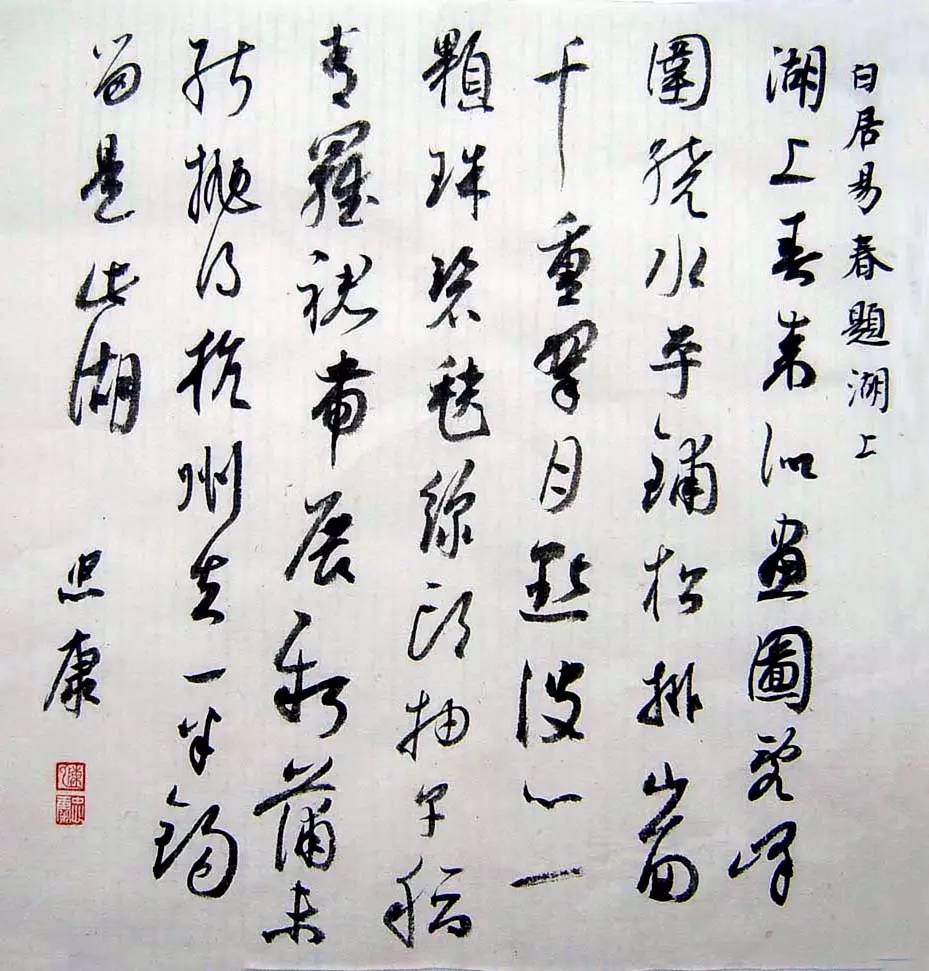 白居易春題湖上
湖上春來似畫圖亂峰
圍繞水平鋪松排山面
千重翠月點波心一
顆珠碧毯線頭抽早稻
青羅裙帶展新蒲未
能拋得杭州去一半鈎
留是此湖
忠康